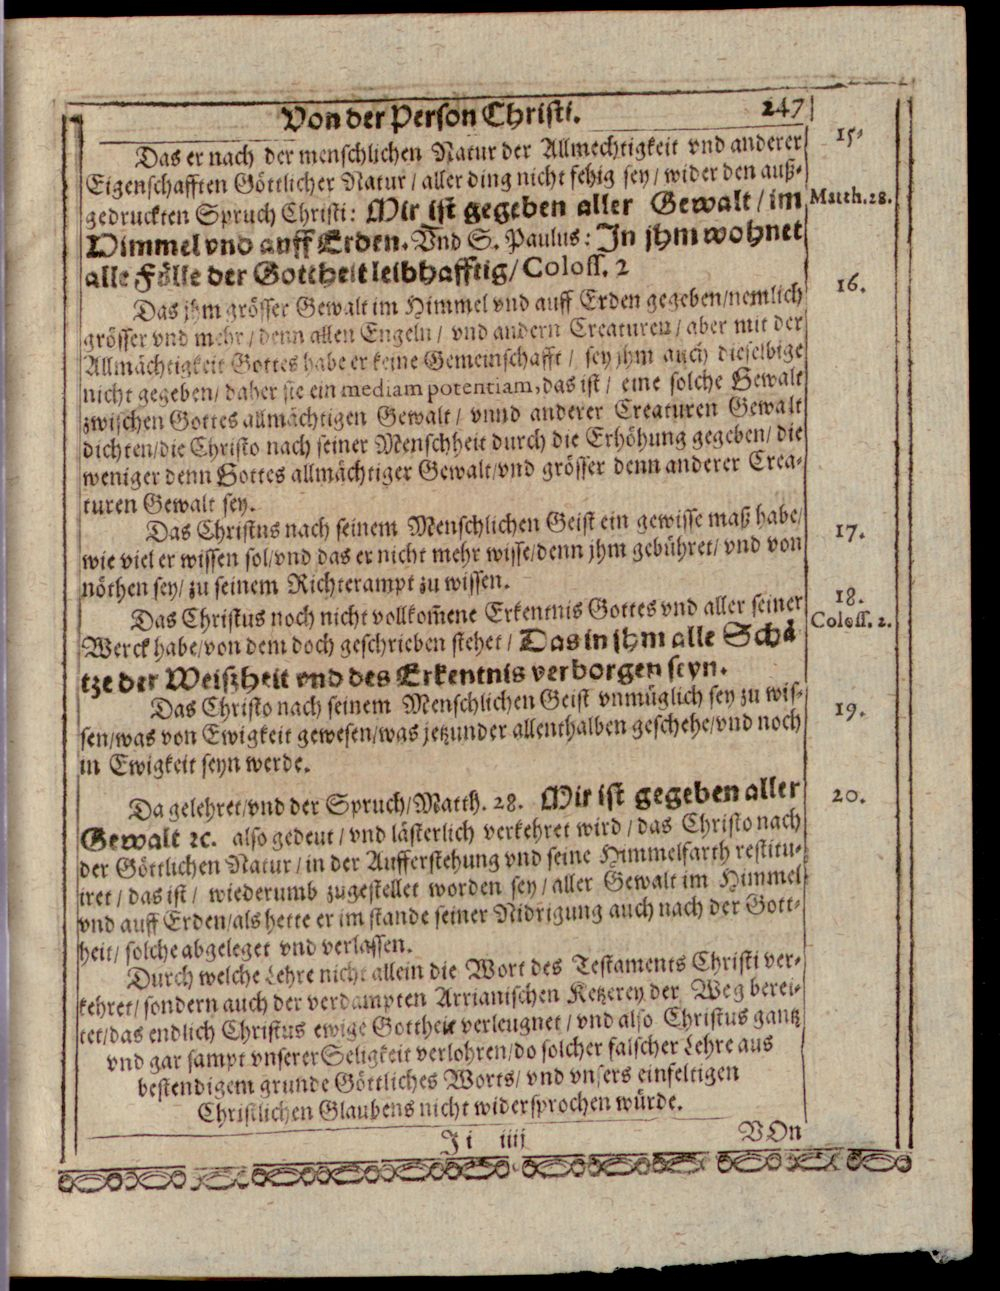 Von der Person Christi. 247
Das er nach der menschlichen Natur der Allmechtigkeit vnd anderer
15.
Eigenschafften Göttlicher Natur / aller ding nicht fehig sey / wider den auß-
gedruckten Spruch Christi: Mir ist gegeben aller Gewalt / im
Matth. 28.
Himmel vnd auff Erden. Vnd S. Paulus: In jhm wohnet
alle Fölle der Gottheit leibhafftig / Coloss. 2
Das jhm grösser Gewalt im Himmel vnd auff Erden gegeben / nemlich
16.
grösser vnd mehr / denn allen Engeln / vnd andern Creaturen / aber mit der
Allmächtigkeit Gottes habe er keine Gemeinschafft / sey jhm auch dieselbige
nicht gegeben / daher sie ein mediam potentiam, das ist / eine solche Gewalt
zwischen Gottes allmächtigen Gewalt / vnnd anderer Creaturen Gewalt
dichten / die Christo nach seiner Menschheit durch die Erhöhung gegeben / die
weniger denn Gottes allmächtiger Gewalt / vnd grösser denn anderer Crea-
turen Gewalt sey.
Das Christus nach seinem Menschlichen Geist ein gewisse maß habe /
17.
wie viel er wissen sol / vnd das er nicht mehr wisse / denn jhm gebühret / vnd von
nöthen sey / zu seinem Richterampt zu wissen.
Das Christus noch nicht vollkom̃ene Erkentnis Gottes vnd aller seiner
18.
Werck habe / von dem doch geschrieben stehet / Das in jhm alle Schä
Coloss. 2.
tze der Weißheit vnd des Erkentnis verborgen seyn.
Das Christo nach seinem Menschlichen Geist vnmüglich sey zu wis-
19.
sen / was von Ewigkeit gewesen / was jetzunder allenthalben geschehe / vnd noch
in Ewigkeit seyn werde.
Da gelehret / vnd der Spruch / Matth. 28. Mir ist gegeben aller
20.
Gewalt ꝛc. also gedeut / vnd lästerlich verkehret wird / das Christo nach
der Göttlichen Natur / in der Aufferstehung vnd seine Himmelfarth restitu-
iret / das ist / wiederumb zugestellet worden sey / aller Gewalt im Himmel
vnd auff Erden / als hette er im stande seiner Nidrigung auch nach der Gott-
heit / solche abgeleget vnd verlassen.
Durch welche Lehre nicht allein die Wort des Testaments Christi ver-
kehret / sondern auch der verdampten Arrianischen Ketzerey der Weg berei-
tet / das endlich Christus ewige Gottheit verleugnet / vnd also Christus gantz
vnd gar sampt vnserer Seligkeit verlohren / do solcher falscher Lehre aus
bestendigem grunde Göttliches Worts / vnd vnsers einfeltigen
Christlichen Glaubens nicht widersprochen würde.
Ji iiij
VOn